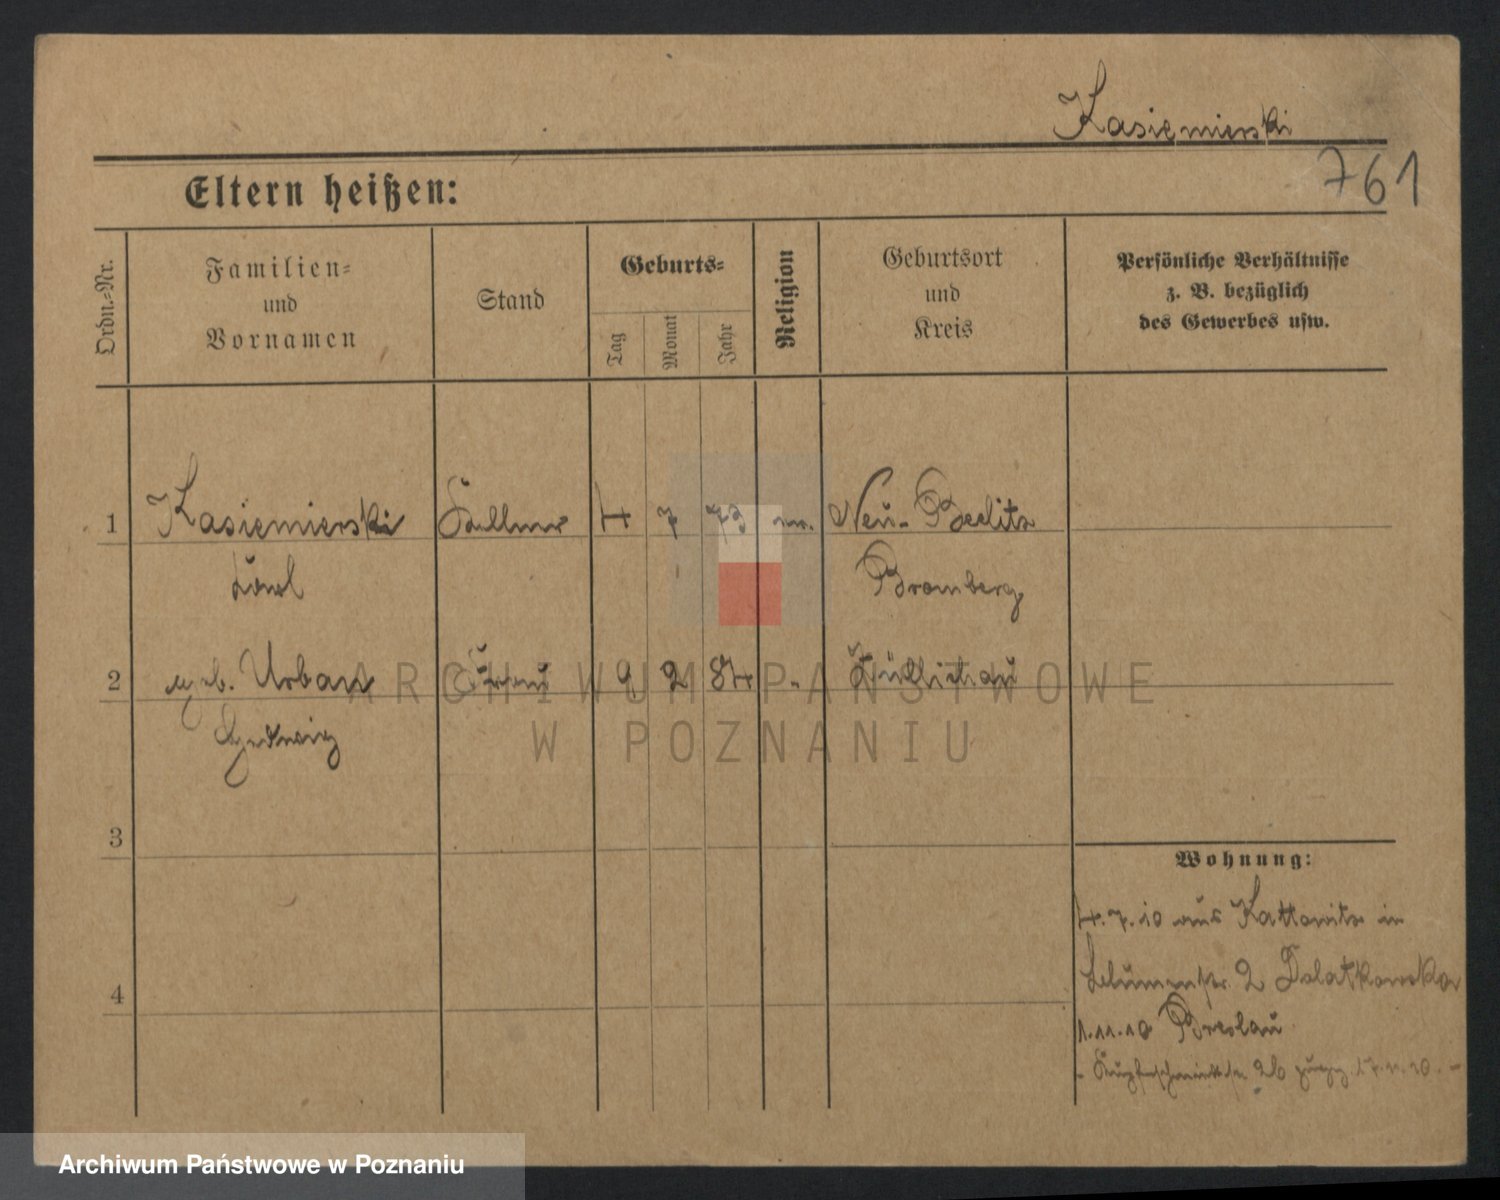 Kasiemierski
761
Eltern heißen:
Ordn.-Nr.
Familien-
und
Vornamen
Stand
Geburts-
Tag
Monat
Jahr
Religion
Geburtsort
und
Kreis
Persönliche Verhältnisse
z. B. bezüglich
des Gewerbes usw.
1 Kasiemierski Kellner 4 7 73 Neu-Beelitz
Karl Bromberg
2 geb. Urban Frau 9 2 84 " Züllichau
Hedwig
3
4
Wohnung:
4.7.10 aus Kattowitz in
Blumenstr. 2
1.11.10 Breslau
Kupferschmiedestr. 26 17.11.10.
ARCHIWUM PAŃSTWOWE
W POZNANIU
Archiwum Państwowe w Poznaniu